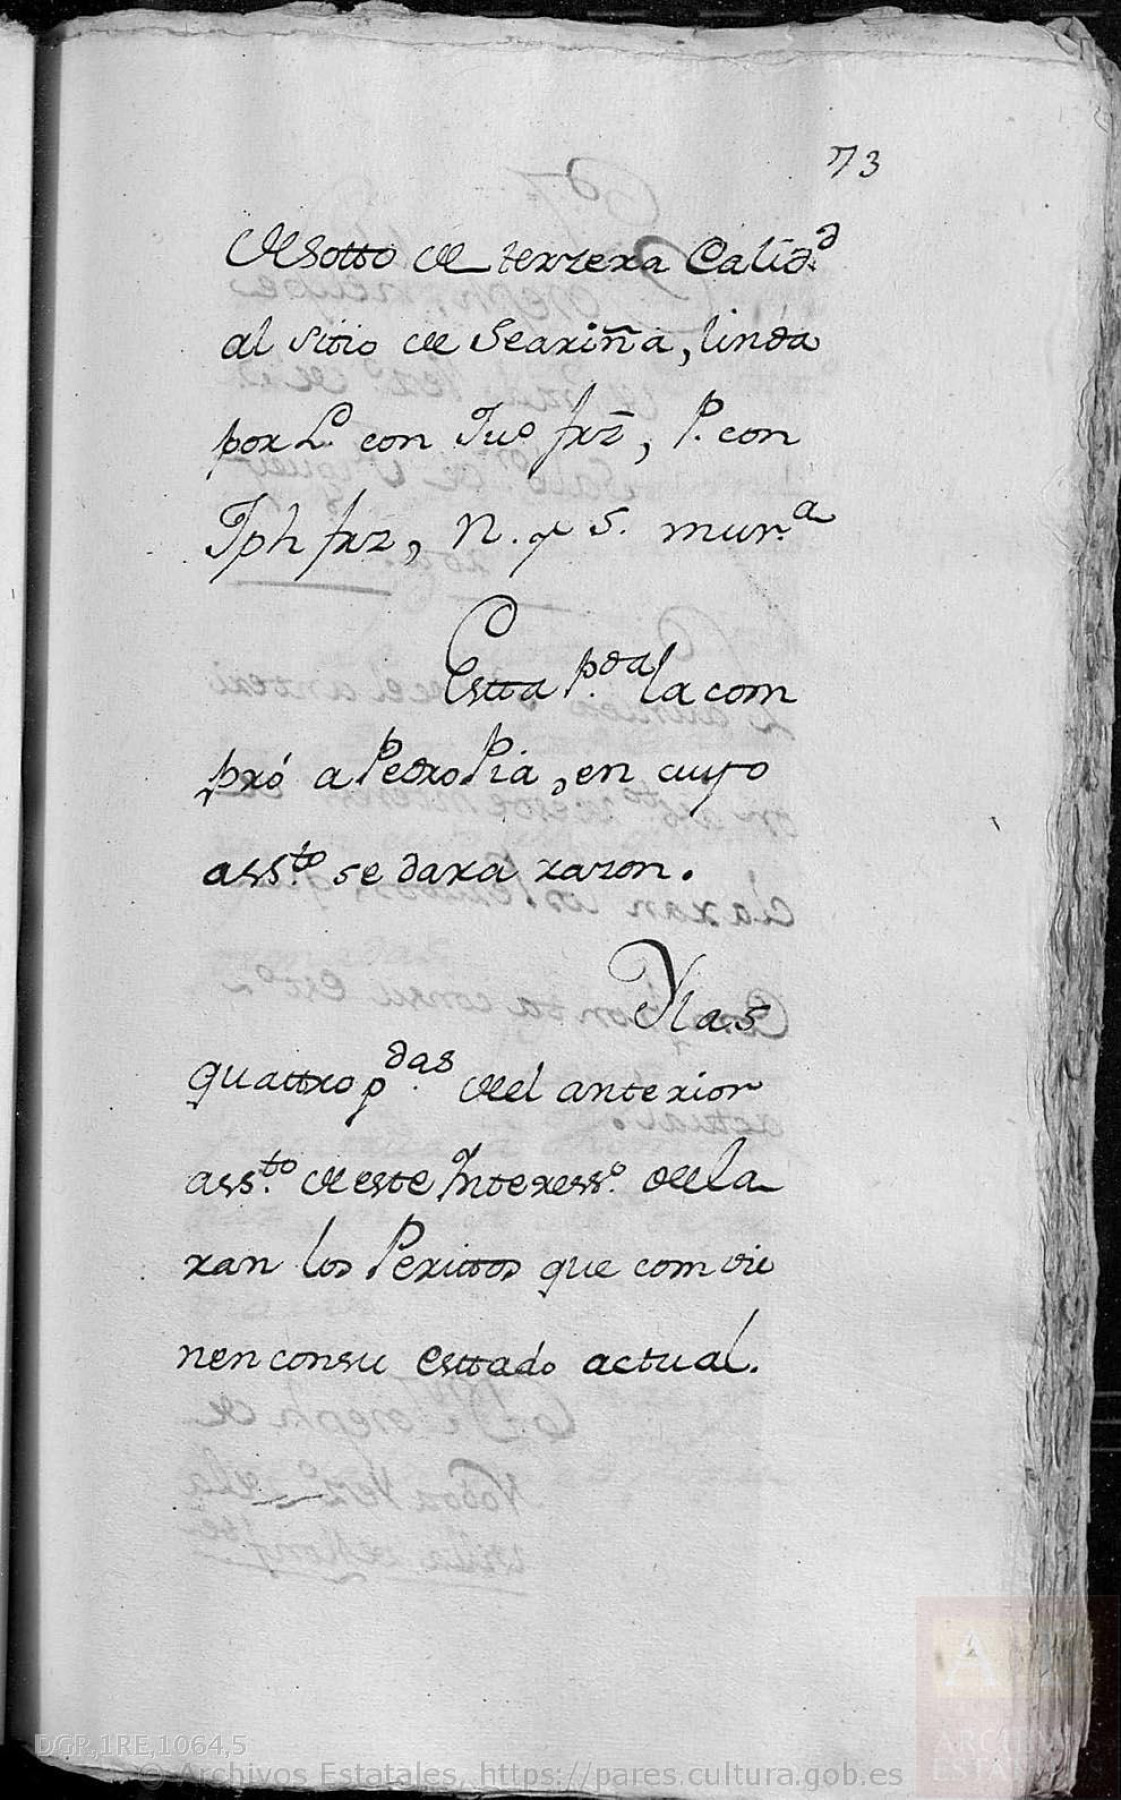 73
de Sotto de terzera Calid.d
al sitio de Seariña, linda
por L.o con Ju.o frz, P. con
Jph frz, N. y S. mur.a
Estta p.da la com
pró a Pedro Pia, en cuyo
ass.to se dara razon.
Y las
quattro p.das del anterior
ass.to de este Interess.o decla
ran los Perittos que combie
nen con su esttado actual.
DGR,1RE,1064,5
© Archivos Estatales, https://pares.cultura.gob.es